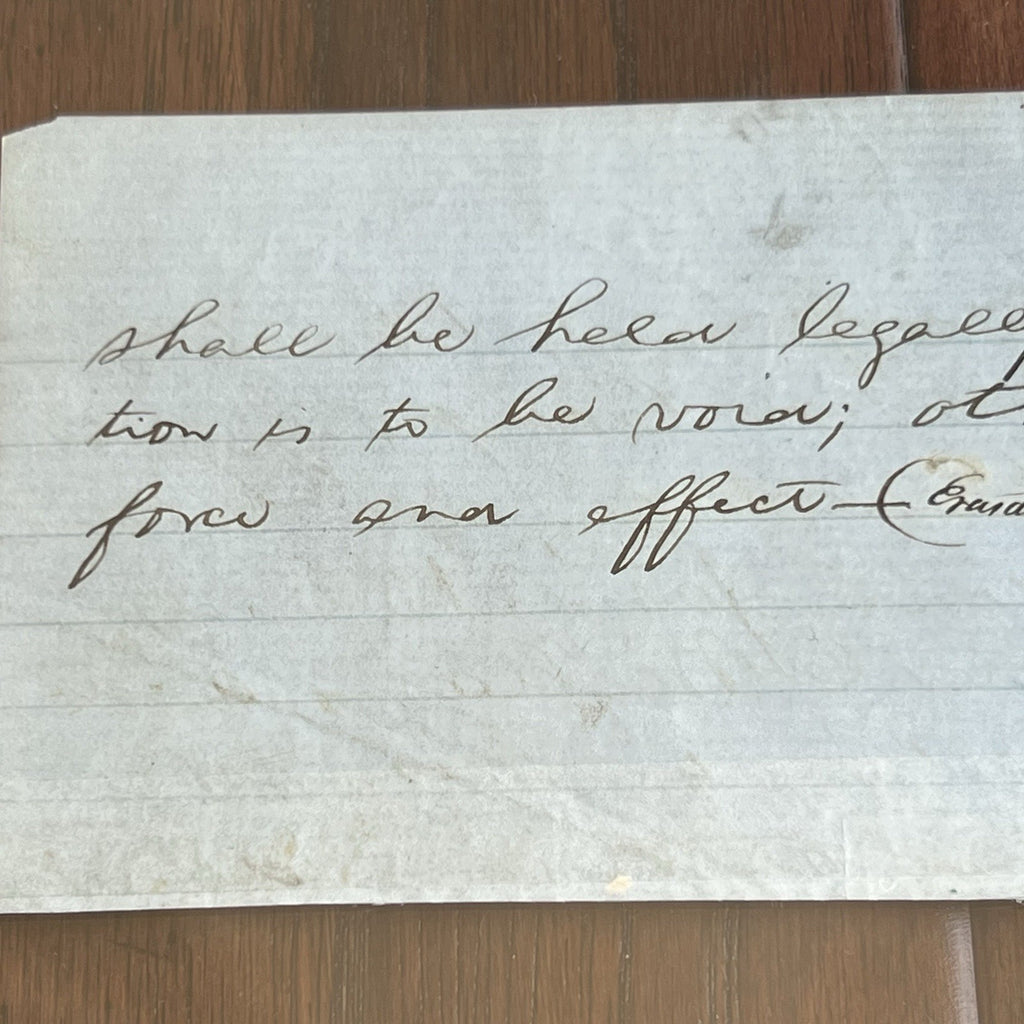 shall be held legall
tion is to be void; ot
force and effect — (Erasa